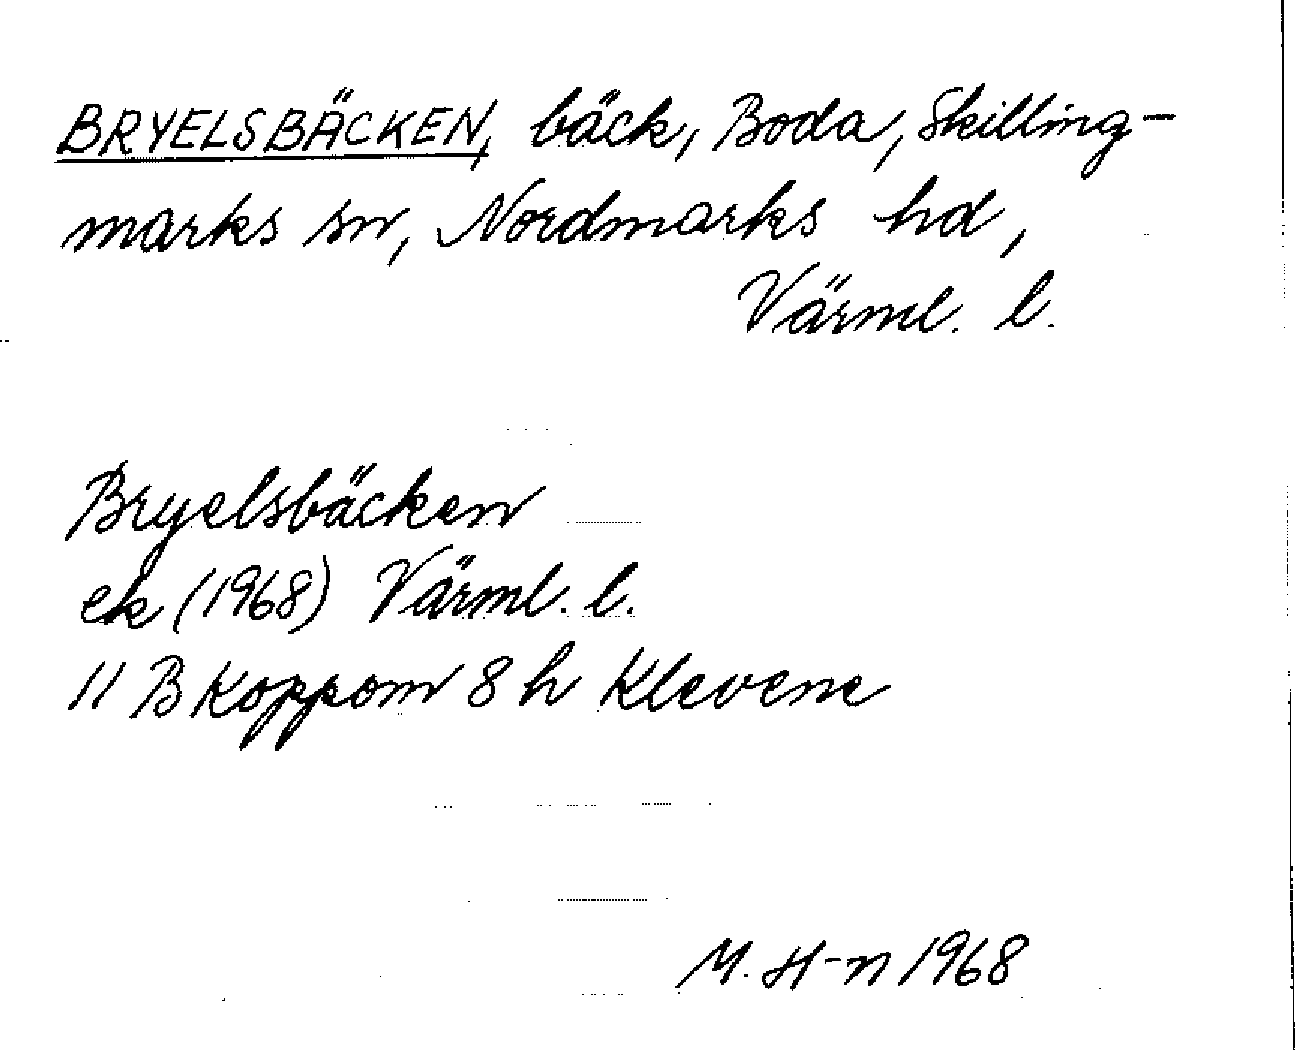 BRYELSBÄCKEN, bäck, Boda, Skilling-
marks sn, Nordmarks hd,
Värml. l.
Bryelsbäcken
ek (1968) Värml. l.
11 B Koppom 8 h Klevene
M. H-n 1968